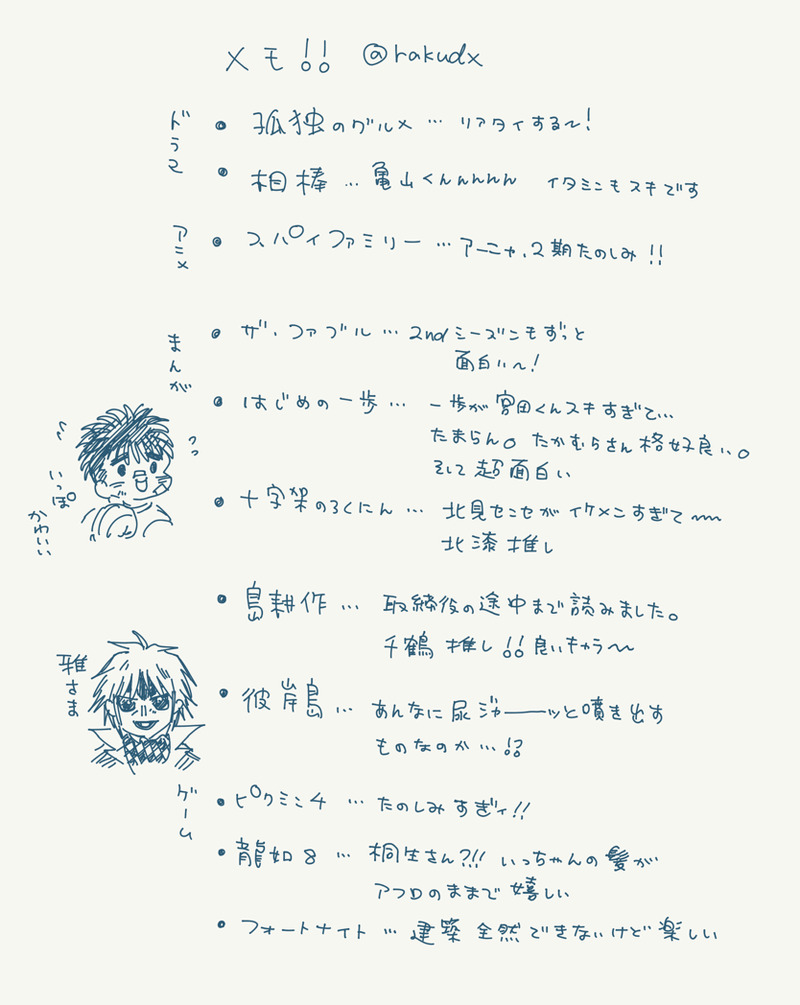 メモ!! @rakudx
ドラマ
• 孤独のグルメ … リアタイする〜!
• 相棒 … 亀山くんんんんん イタミンもスキです
アニメ
• スパイファミリー … アーニャ、2期たのしみ!!
まんが
• ザ・ファブル … 2ndシーズンもずっと
面白い〜!
• はじめの一歩 … 一歩が宮田くんスキすぎて…
たまらん。たかむらさん格好良い。
そして超面白い
いっぽ
かわいい
• 十字架のろくにん … 北見センセがイケメンすぎて〜〜
北漆推し
• 島耕作 … 取締役の途中まで読みました。
千鶴推し!!良いキャラ〜〜
雅さま
• 彼岸島 … あんなに尿ジャ――ッと噴き出す
ものなのか…!?
ゲーム
• ピクミン4 … たのしみすぎィ!!
• 龍如8 … 桐生さん?!! いっちゃんの髪が
アフロのままで嬉しい
• フォートナイト … 建築全然できないけど楽しい